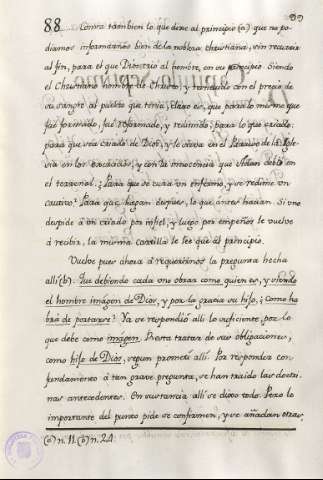 88
Consta tambien lo que dixe al principio (a) que no po-
diamos informarnos bien de la nobleza Christiana, sin recurrir
al fin, para el que Dios crió al hombre, en su principio. Siendo
el Christiano hombre de Christo, y redimido con el precio de
su sangre al puesto que tenia, claro es, que para lo mismo que
fué formado, fué reformado, y redimido; para lo que criado:
para que sea criado de Dios, y le sirva en el Paraiso de la Igle-
sia en los Sacram.tos, y con la innocencia que Adan debia en
el terrenal. Para que se cura un enfermo, y se redime un
cautivo? Para que hagan despues, lo que antes hacian. Si uno
despide á un criado por infiel, y luego por empeños le vuelve
á recibir, la misma cartilla le lee que al principio.
Vuelve pues ahora á requerirnos la pregunta hecha
allí (b). Que debiendo cada uno obrar como quien es, y siendo
el hombre imágen de Dios, y por la gracia su hijo, ¿Como ha-
brá de portarse? Ya se respondió allí lo suficiente, por lo
que debe como imágen. Resta tratar de sus obligaciones,
como hijo de Dios, segun prometí allí. Para responder con
fundamento á tan grave pregunta, se han traido las doctri-
nas antecedentes. En sustancia allí se dixo todo. Pero lo
importante del punto pide se confirmen, y se añadan otras.
(a) n. 11. (b) n. 24.